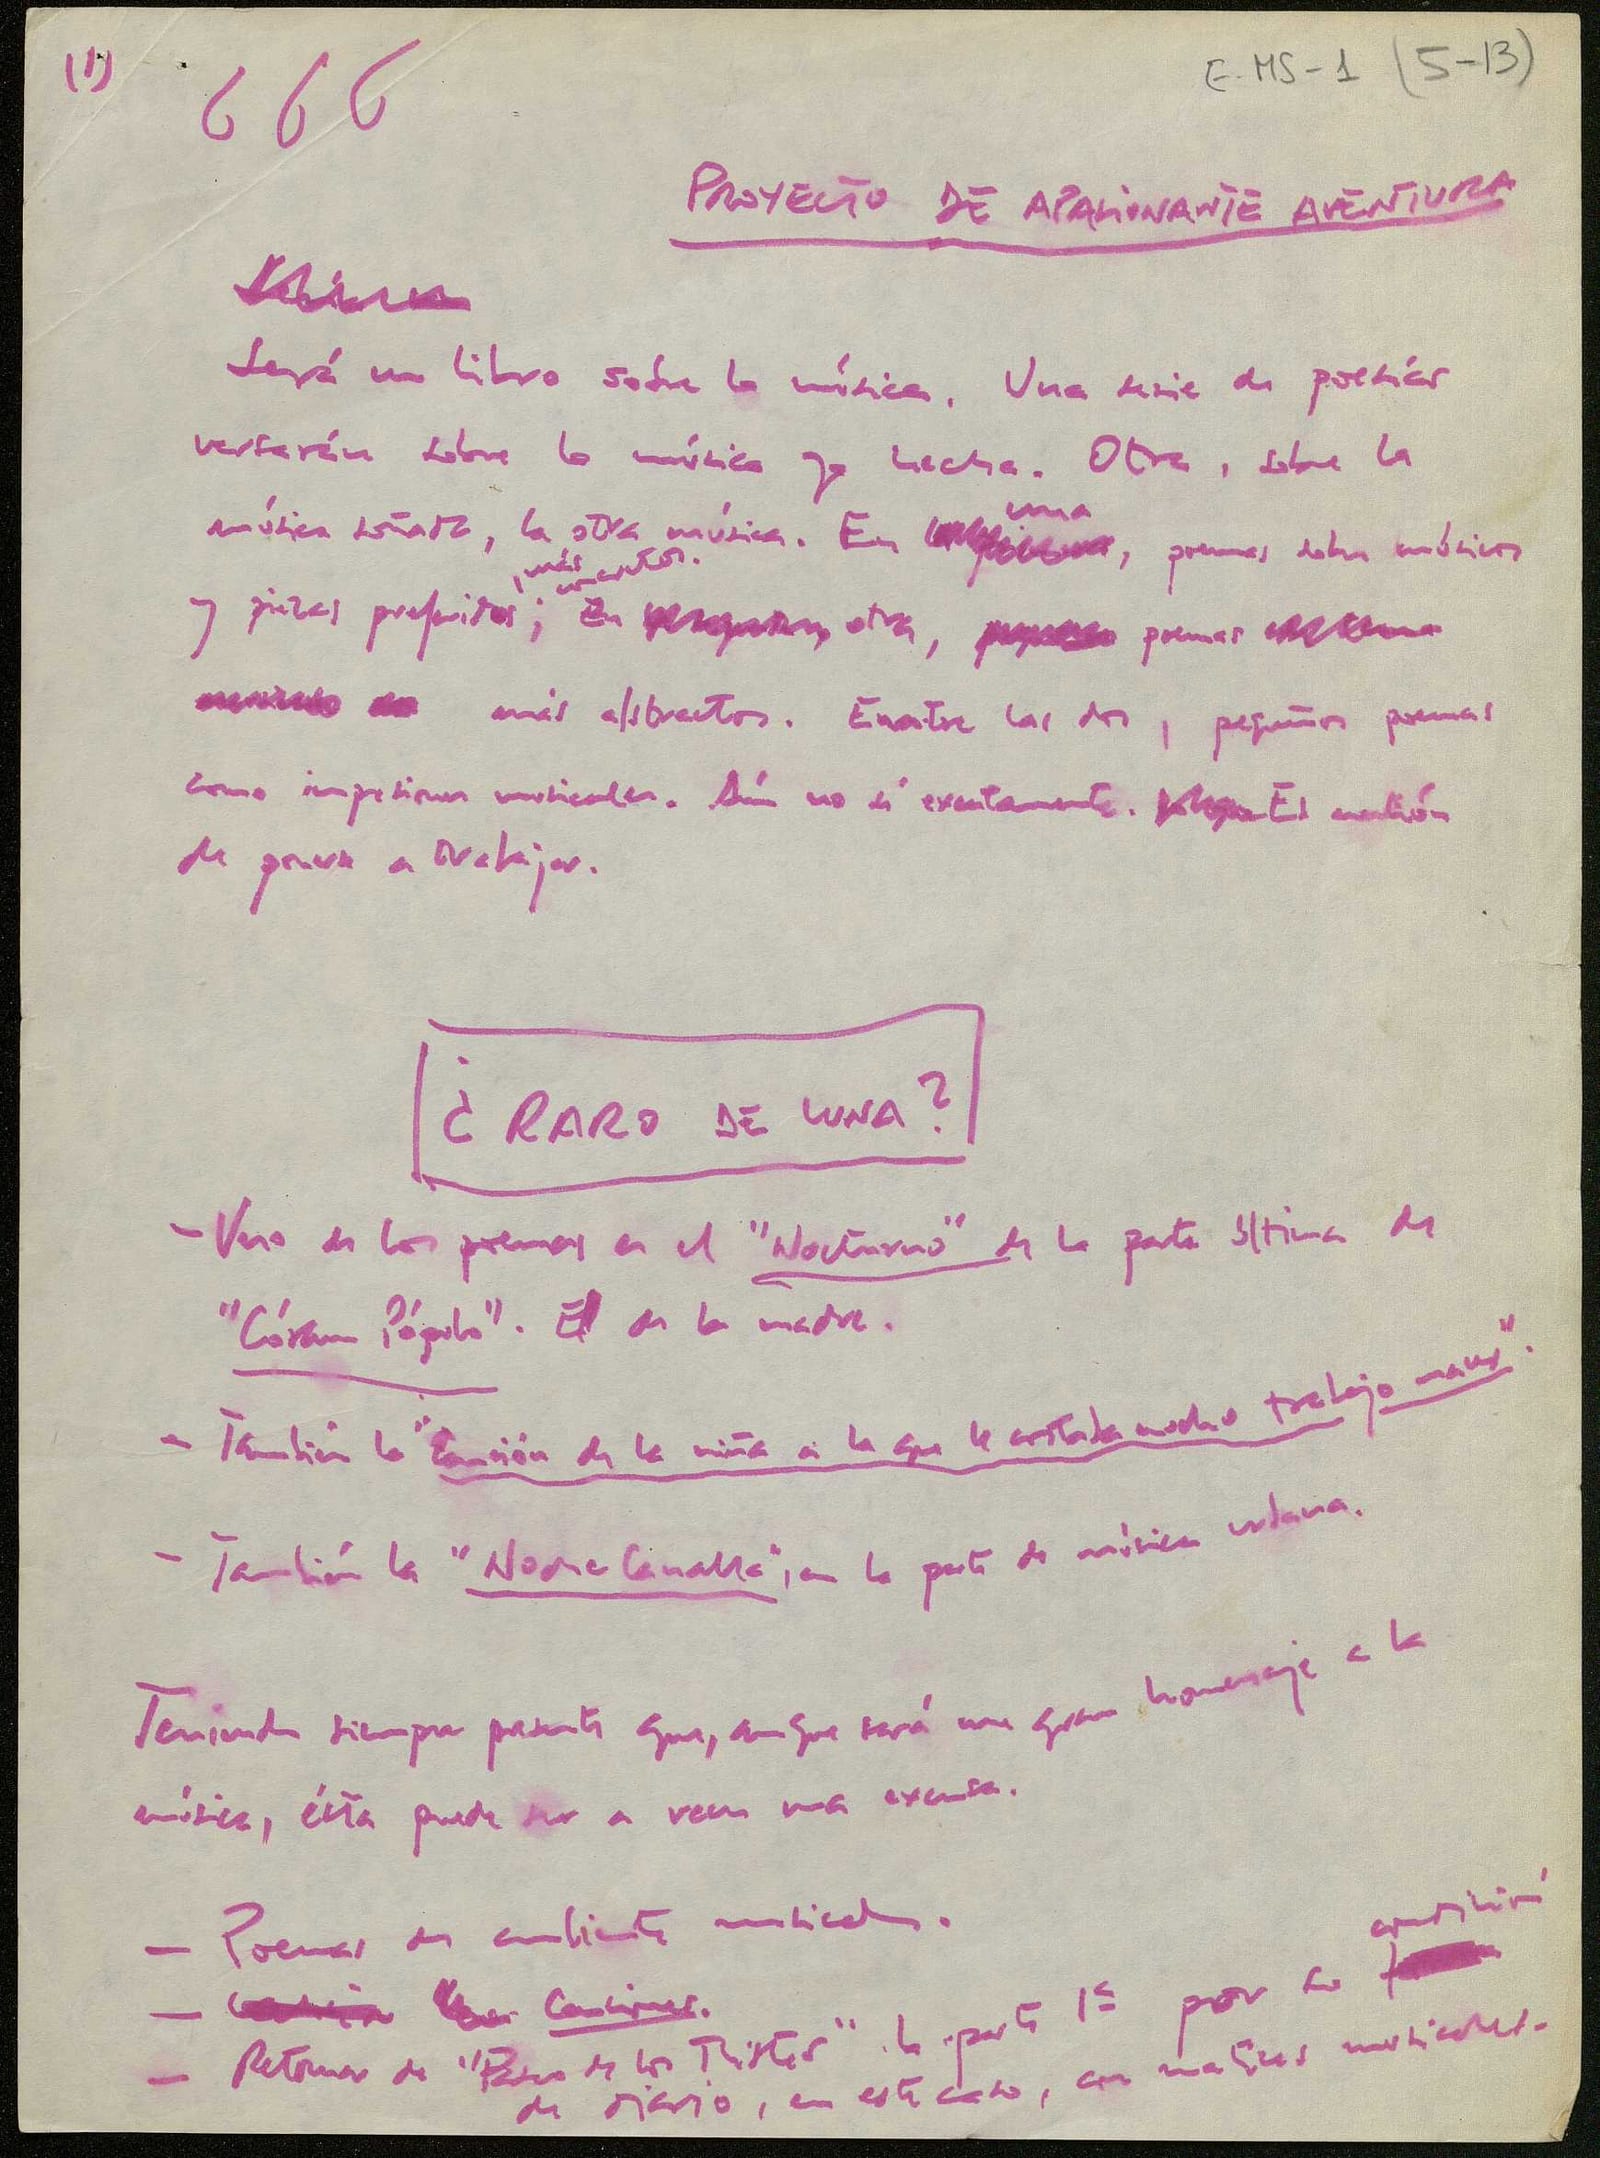 (1)
666
E-MS-1 (5-13)
PROYECTO DE APASIONANTE AVENTURA
Será un libro sobre la música. Una serie de poesías
versarán sobre la música ya hecha. Otra, sobre la
música soñada, la otra música. En una, poemas sobre músicos
y piezas preferidos, más concretos.; En otra, poemas
más abstractos. Enntre las dos, pequeños poemas
como impresiones musicales. Aún no sé exactamente. Es cuestión
de poner a trabajar.
¿RARO DE LUNA?
- Uno de los poemas es el "Nocturno" de la parte última de
"Córam Pópulo". El de la madre.
- También la "Canción de la niña a la que le costaba mucho trabajo
- También la "Noche Canalla", en la parte de música urbana.
Teniendo siempre presente que, aunque será un gran homenaje a la
música, ésta puede ser a veces una excusa.
- Poemas de ambiente musical.
- Canciones.
- Retomar de "Paseo de los Tristes" la parte 1ª por su condición
de diario, en este caso, con matices musicales.